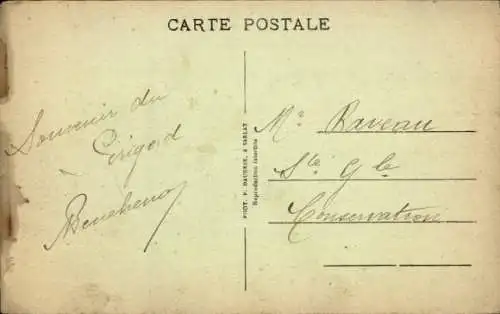 CARTE POSTALE
Souvenir du
Périgord
PHOT. P. DAUDRIX, A SARLAT
Reproduction interdite
Mr Raveau
Sté Gle
Conservation